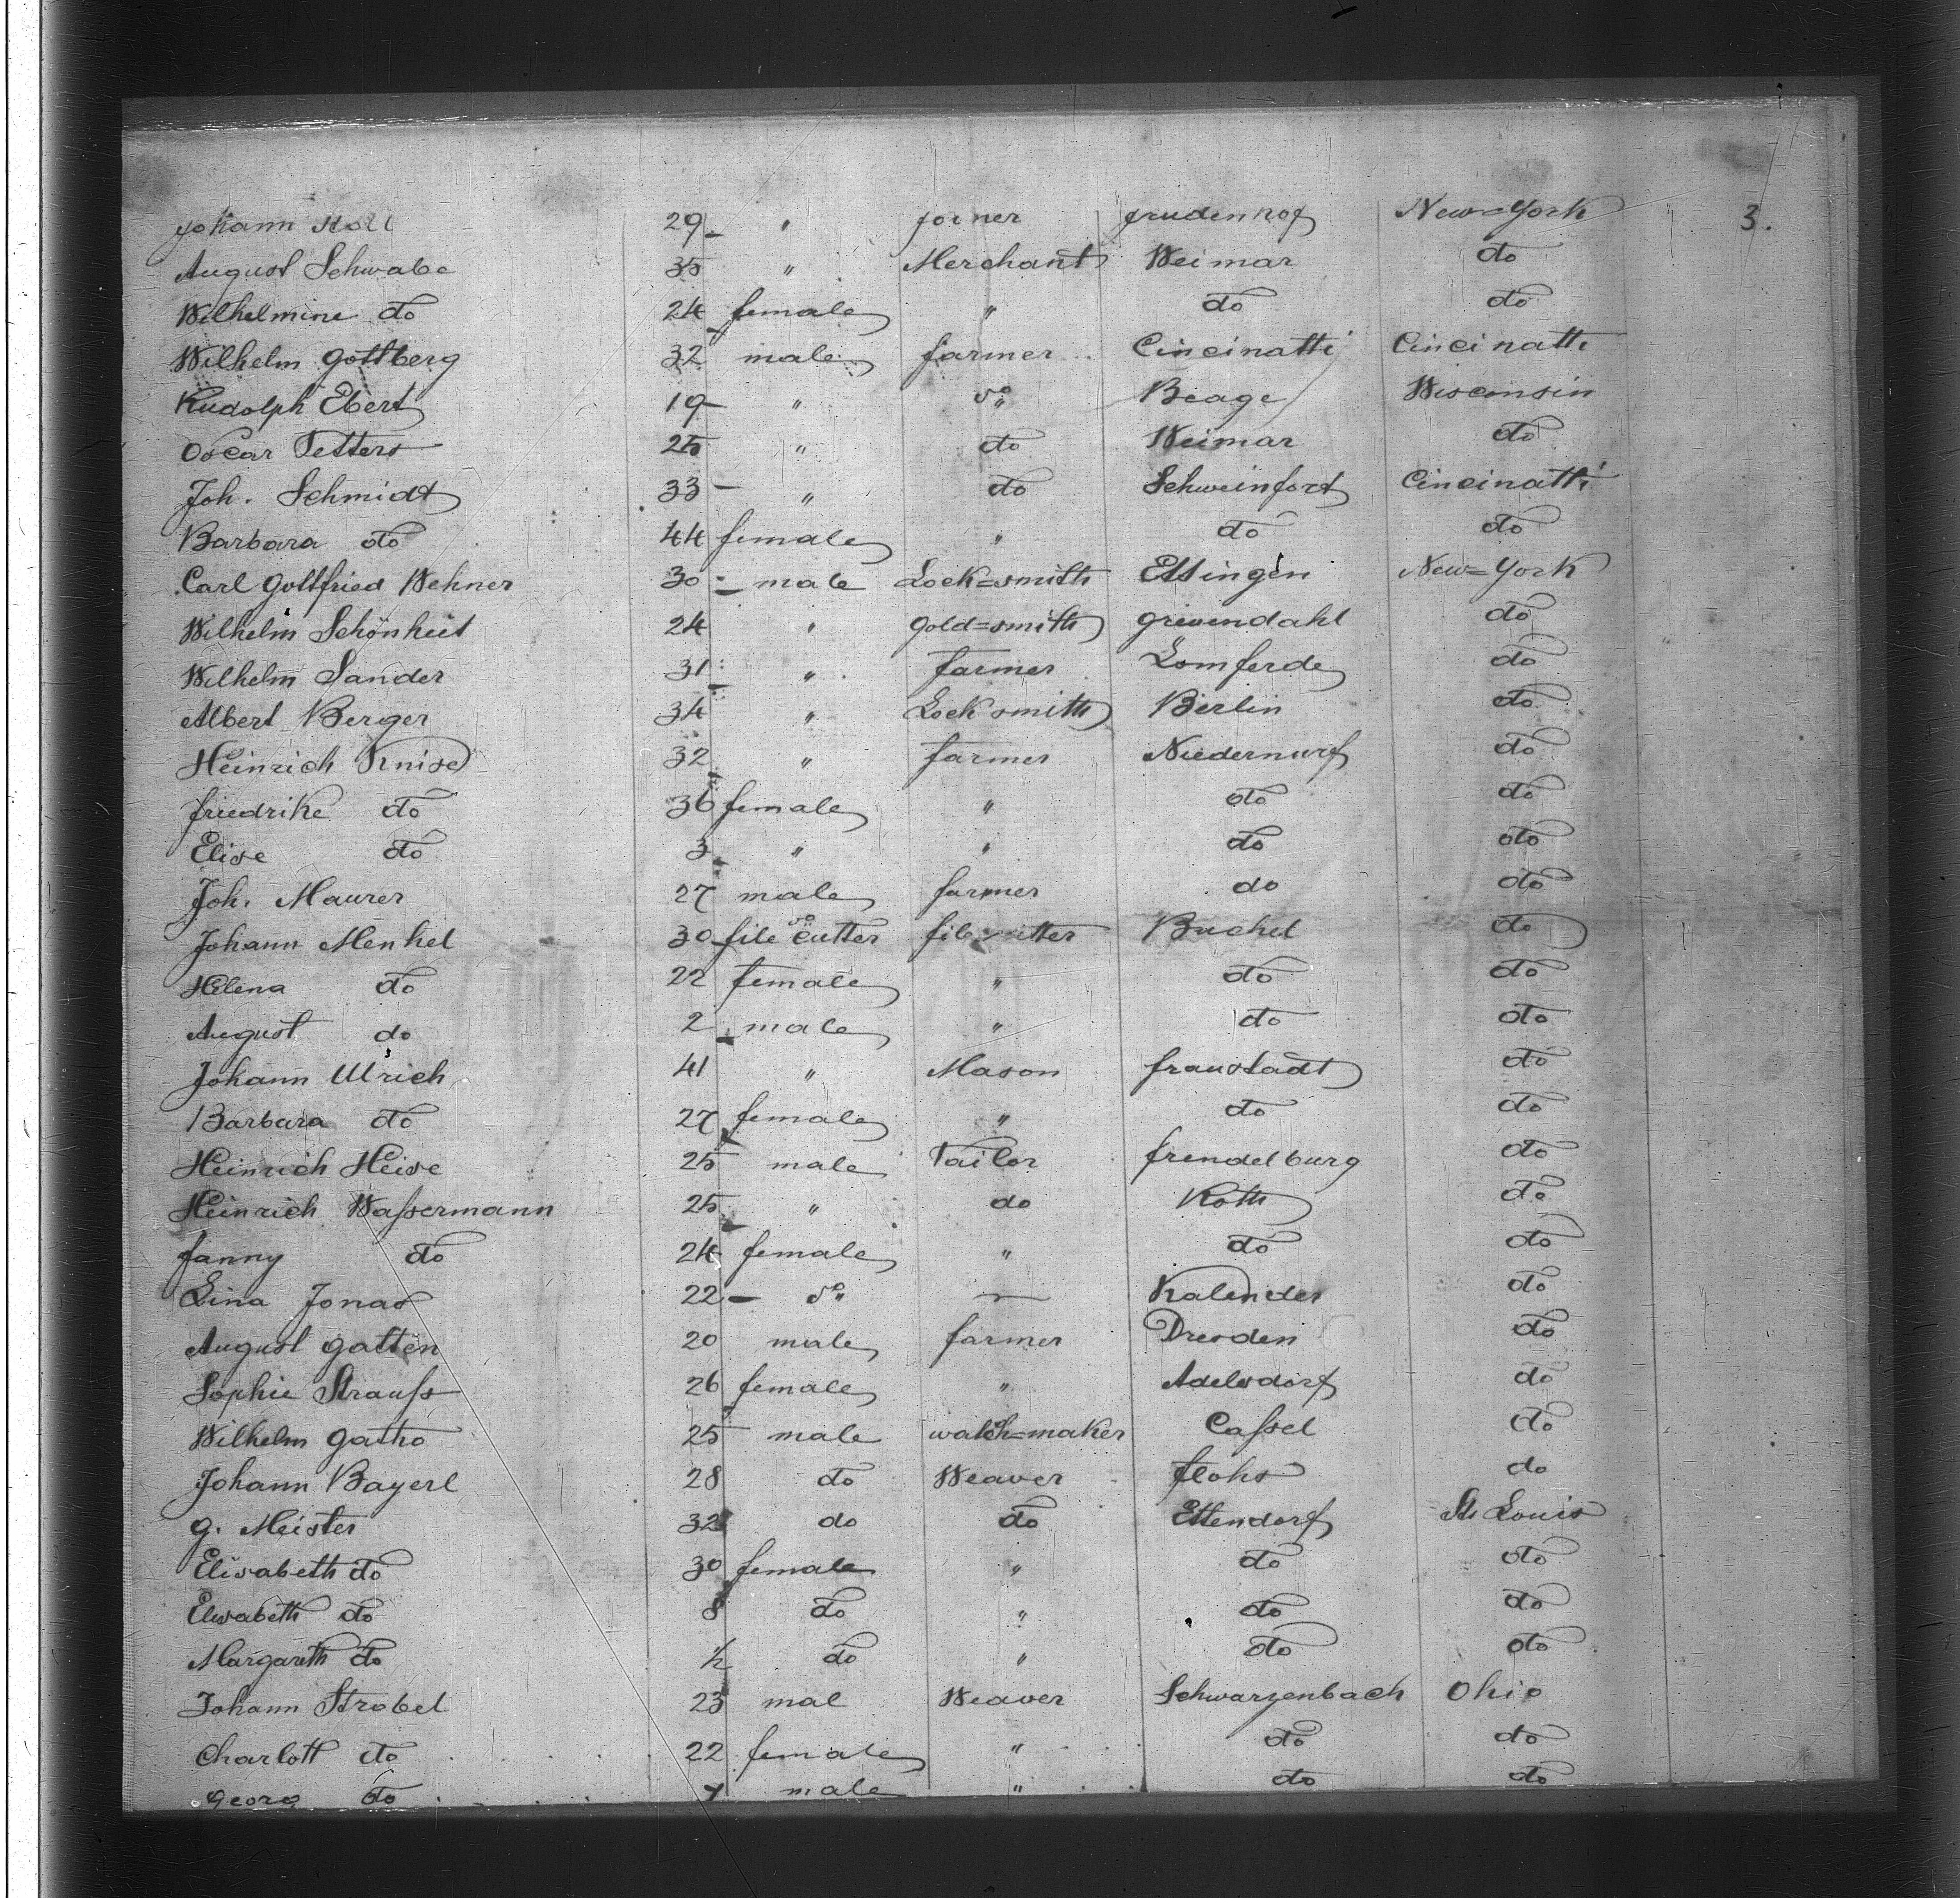 Johann 29 " joiner New=York 3.
August Schwabe 35 " Merchant Weimar do
Wilhelmine do 24 female " do do
Wilhelm Gottberg 32 male farmer Cincinatti Cincinatti
Rudolph Ebert 19 " do Beage Wisconsin
Oscar Tetters 25 " do Weimar do
Joh. Schmidt 33 " do Schweinfort Cincinatti
Barbara do 44 female " do do
Carl Gottfried Wehner 30 male Lock=smith Ettingen New=York
Wilhelm Schönheit 24 " gold=smith grevendahl do
Wilhelm Sander 31 " farmer Lomferde do
Albert Berger 34 " Lock smith Berlin do
Heinrich Knise 32 " farmer Niedernurf do
friedrike do 36 female " do do
Elise do 3 " " do do
Joh. Maurer 27 male farmer do do
Johann Menkel 30 file cutter file cutter Buchel do
Helena do 22 female " do do
August do 2 male " do do
Johann Ulrich 41 " Mason fraustadt do
Barbara do 27 female " do do
Heinrich Heise 25 male Tailor frendelburg do
Heinrich Waſsermann 25 " do Roth do
fanny do 24 female " do do
Lina Jonas 22 - do — Kalender do
August Gatten 20 male farmer Dresden do
Sophie Strauſs 26 female " Adelsdorf do
Wilhelm Gatho 25 male watch=maker Caſsel do
Johann Bayerl 28 do Weaver flohs do
G. Meister 32 do do Ettendorf St. Louis
Elisabeth do 30 female " do do
Elisabeth do 8 do " do do
Margareth do ½ do " do do
Johann Strobel 23 mal Weaver Schwarzenbach Ohio
Charlott do 22 female " do do
Georg do male " do do